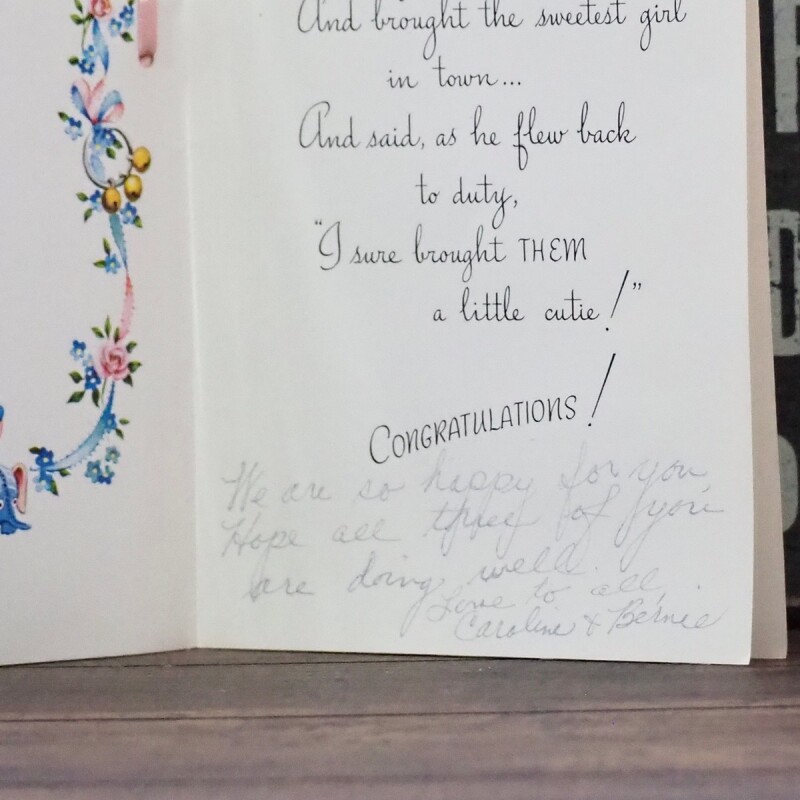 And brought the sweetest girl
in town...
And said, as he flew back
to duty,
"I sure brought THEM
a little cutie!"
CONGRATULATIONS!
We are so happy for you
Hope all three of you
are doing well.
Love to all,
Caroline & Bernie